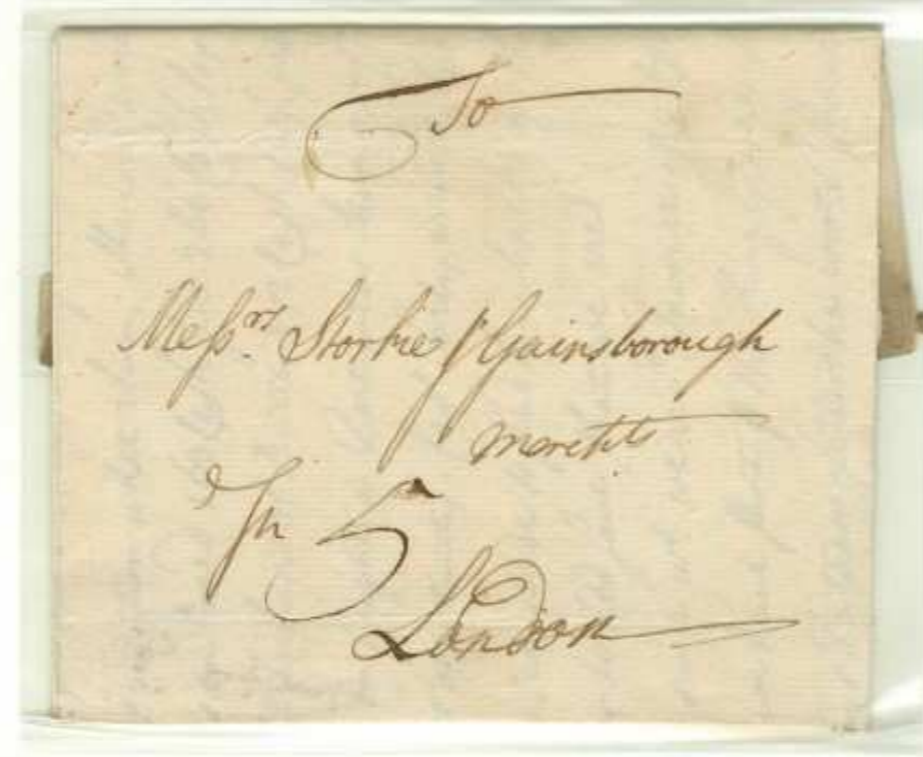 To
Messrs. Storkie & Gainsborough
merchts
In 5
London